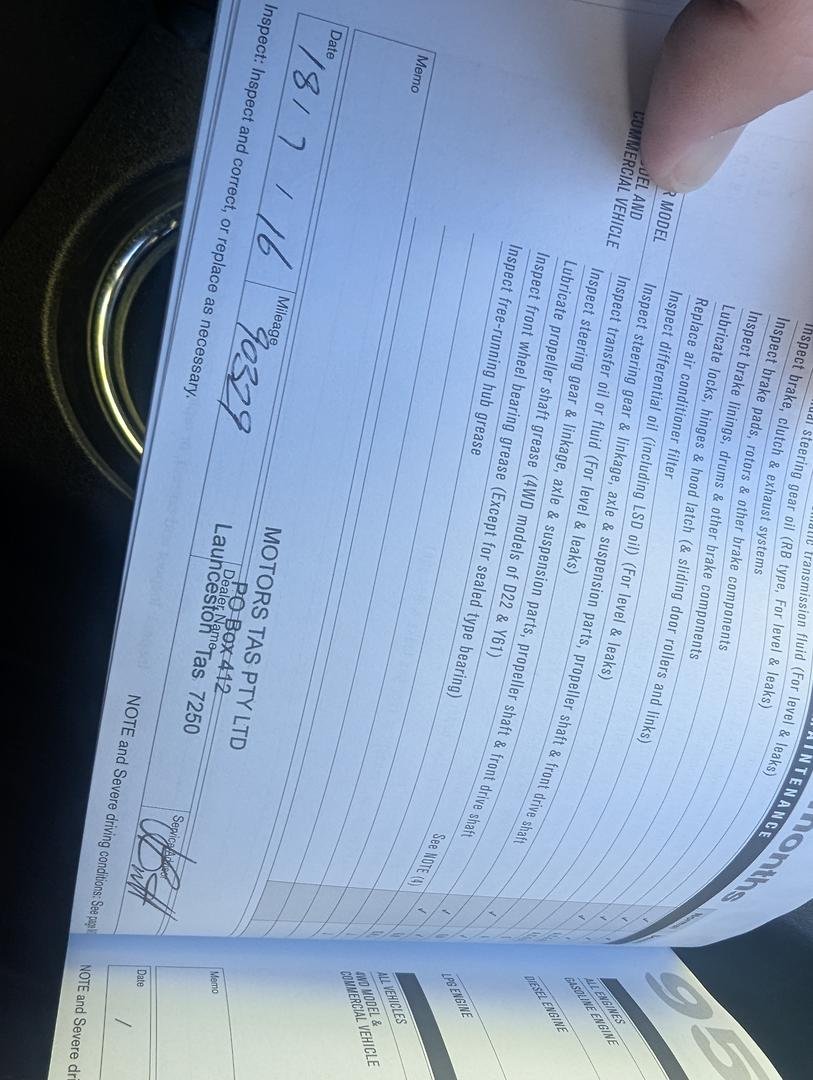 months
MAINTENANCE
transmission fluid (For level & leaks)
steering gear oil (RB type, For level & leaks)
Inspect brake, clutch & exhaust systems
Inspect brake pads, rotors & other brake components
Inspect brake linings, drums & other brake components
Lubricate locks, hinges & hood latch (& sliding door rollers and links)
Replace air conditioner filter
MODEL
Inspect differential oil (including LSD oil) (For level & leaks)
AND
COMMERCIAL VEHICLE
Inspect steering gear & linkage, axle & suspension parts, propeller shaft & front drive shaft
Inspect transfer oil or fluid (For level & leaks)
Inspect steering gear & linkage, axle & suspension parts, propeller shaft & front drive shaft
Lubricate propeller shaft grease (4WD models of D22 & Y61)
Inspect front wheel bearing grease (Except for sealed type bearing)
See NOTE (4)
Inspect free-running hub grease
Memo
Date
18 / 7 / 16
Mileage
90329
MOTORS TAS PTY LTD
PO Box 412
Dealer Name
Launceston Tas. 7250
Inspect: Inspect and correct, or replace as necessary.
NOTE and Severe driving conditions: See page
95
ALL ENGINES
GASOLINE ENGINE
DIESEL ENGINE
LPG ENGINE
ALL VEHICLES
4WD MODEL &
COMMERCIAL VEHICLE
Memo
Date
/
NOTE and Severe dri